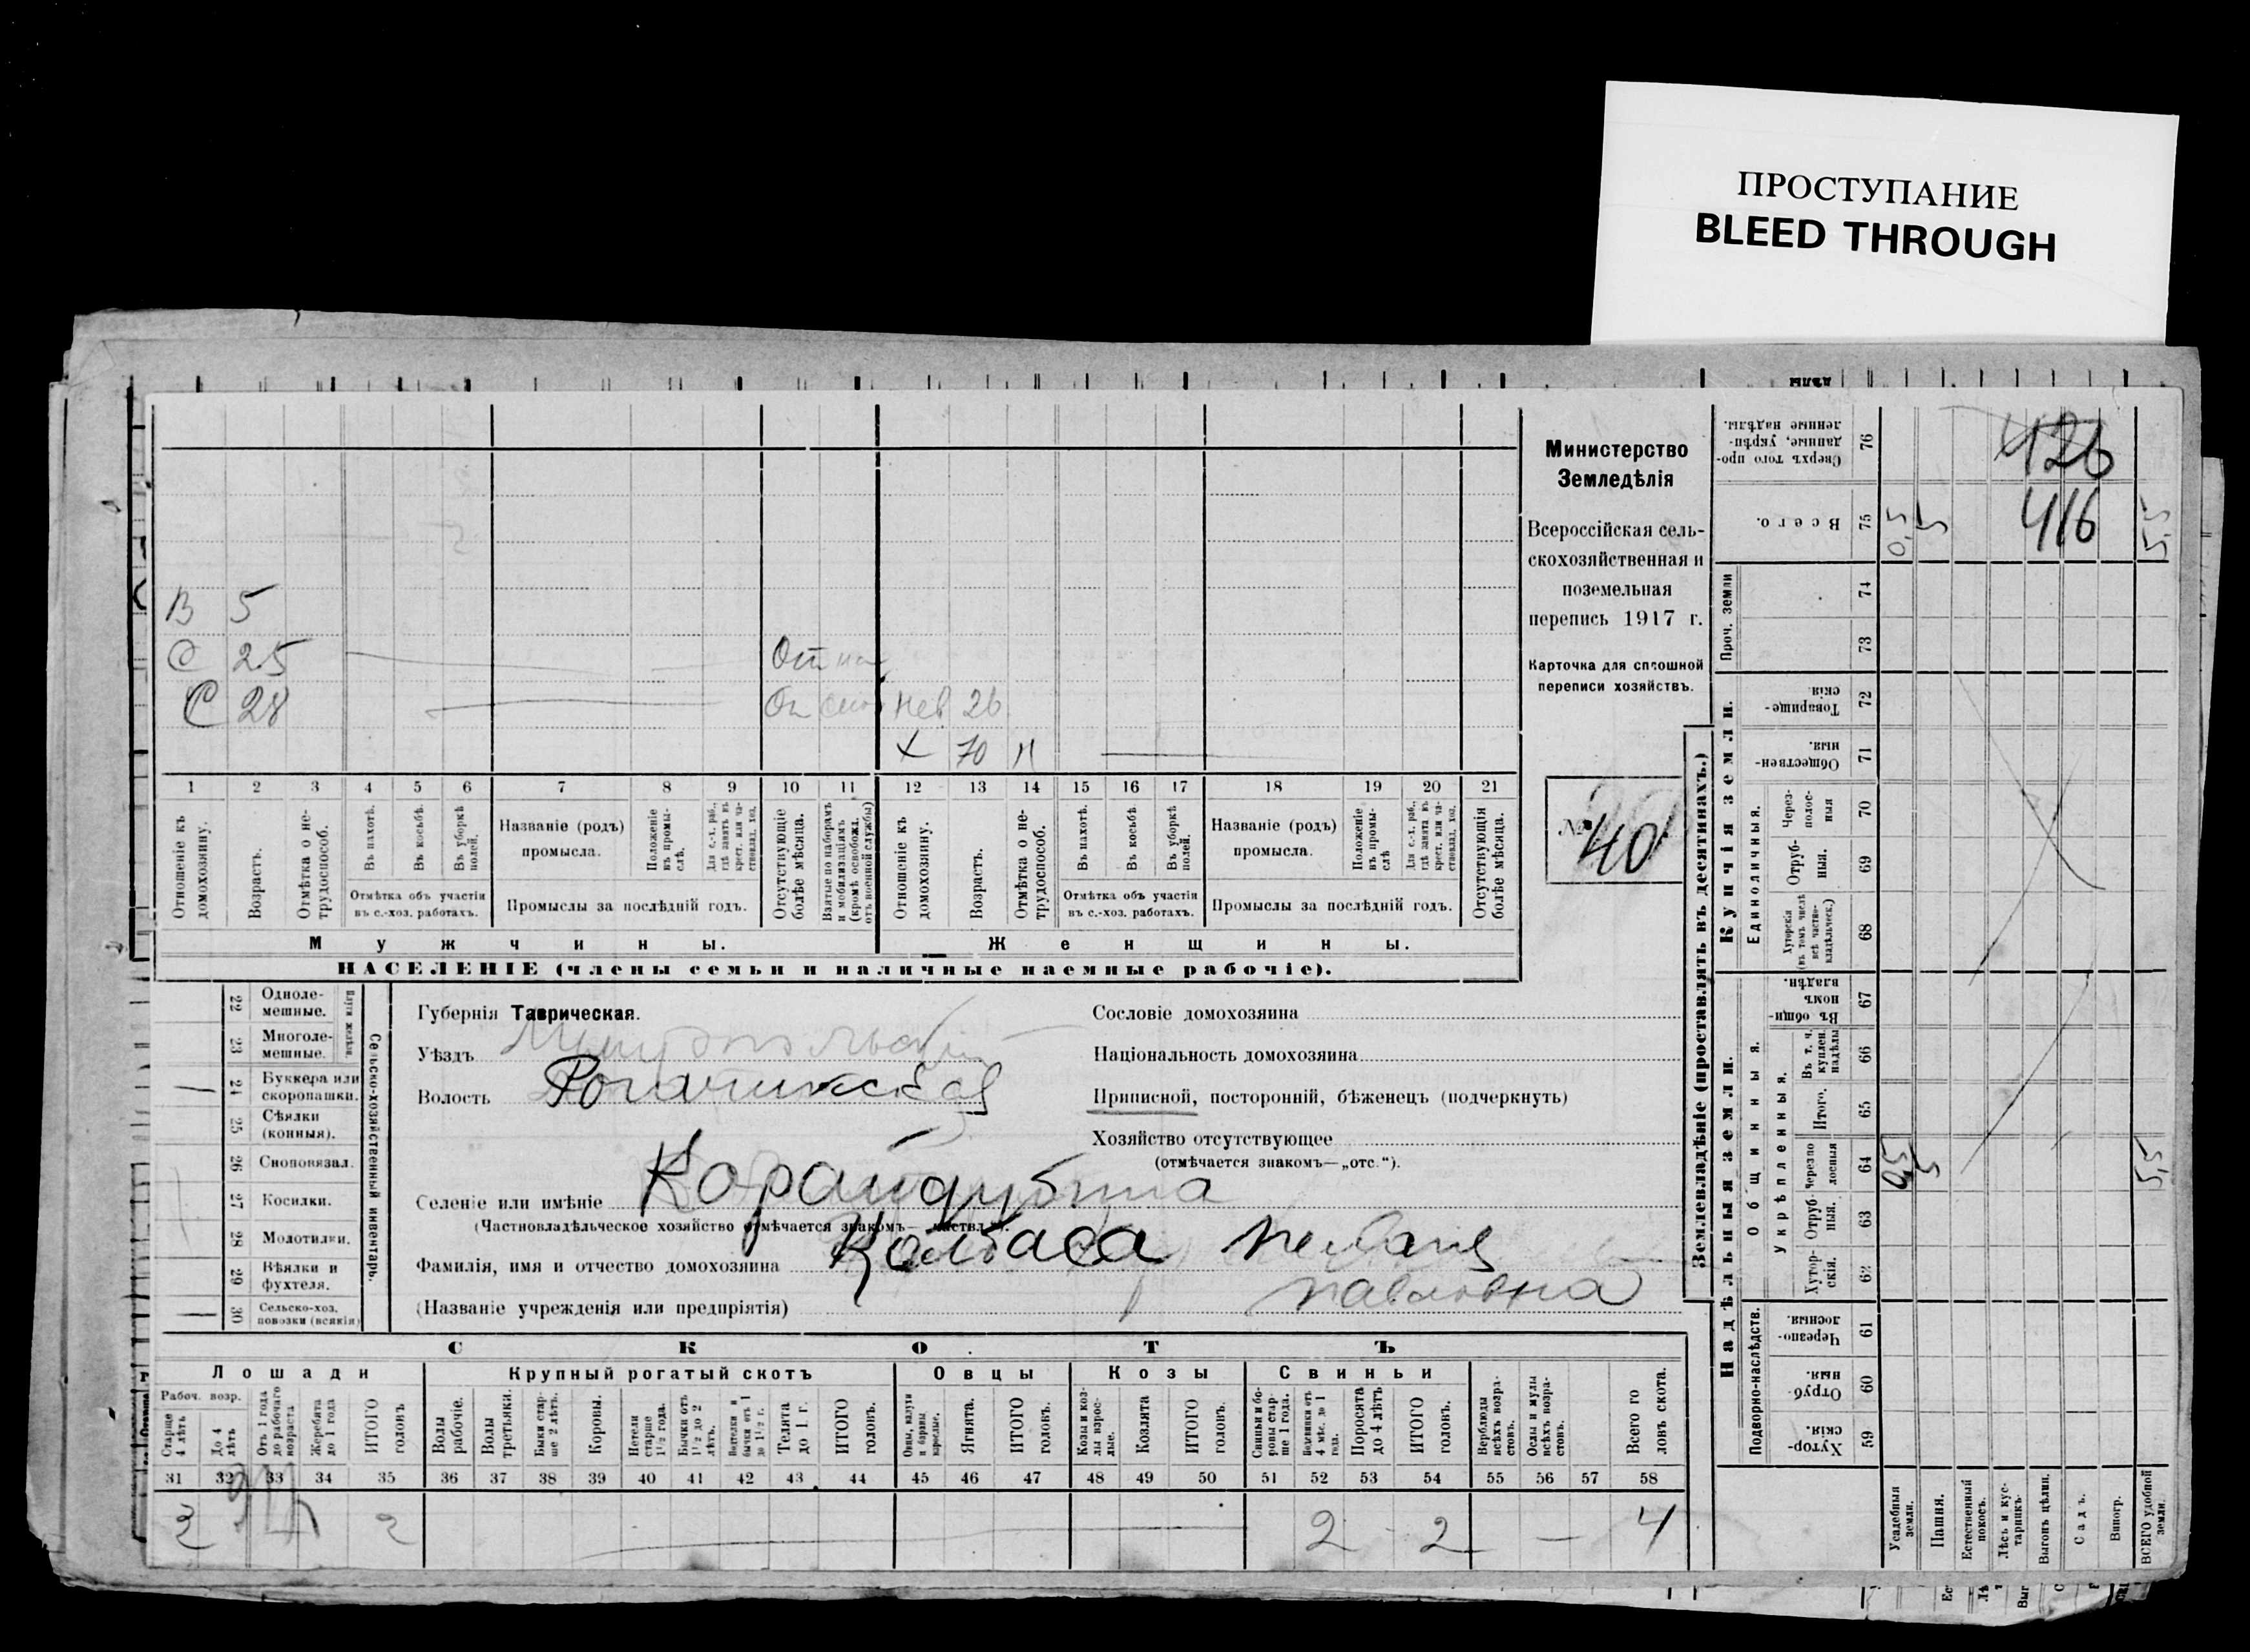 ПРОСТУПАНИЕ
BLEED THROUGH
В 5
С 25
С 28
Нев 26
70 Н
1 2 3 4 5 6 7 8 9 10 11 12 13 14 15 16 17 18 19 20 21
Отношеніе къ домохозяину.
Возрастъ.
Отмѣтка о нетрудоспособ.
Въ пахотѣ.
Въ косьбѣ.
Въ уборкѣ полей.
Отмѣтка объ участіи
въ с.-хоз. работахъ.
Названіе (родъ)
промысла.
Положеніе въ промыслѣ.
Промыслы за послѣдній годъ.
Отсутствующіе болѣе мѣсяца.
Взятые по наборамъ и мобилизаціямъ (кромѣ освобожд. отъ военной службы)
Отношеніе къ домохозяину.
Возрастъ.
Отмѣтка о нетрудоспособ.
Въ пахотѣ.
Въ косьбѣ.
Въ уборкѣ полей.
Отмѣтка объ участіи
въ с.-хоз. работахъ.
Названіе (родъ)
промысла.
Положеніе въ промыслѣ
Промыслы за послѣдній годъ.
Отсутствующія болѣе мѣсяца.
Мужчины.
Женщины.
НАСЕЛЕНІЕ (члены семьи и наличные наемные рабочіе).
Министерство
Земледѣлія
Всероссійская сель-
скохозяйственная и
поземельная
перепись 1917 г.
Карточка для сплошной
переписи хозяйствъ.
№ 40
22 Одноле-
мешные.
23 Многоле-
мешные.
24 Буккера или
скоропашки.
25 Сѣялки
(конныя).
26 Сноповязал.
27 Косилки.
28 Молотилки.
29 Вѣялки и
фухтеля.
30 Сельско-хоз.
повозки (всякія)
Сельско-хозяйственный инвентарь.
Губернія Таврическая.
Уѣздъ
Волость Рогачикская
Селеніе или имѣніе Карайдубина
(Частновладѣльческое хозяйство отмѣчается знакомъ—
Фамилія, имя и отчество домохозяина Колбаса Мелания
Павловна
(Названіе учрежденія или предпріятія)
Сословіе домохозяина
Національность домохозяина
Приписной, посторонній, бѣженецъ (подчеркнуть)
Хозяйство отсутствующее
(отмѣчается знакомъ—„отс.“).
СКОТЪ
Лошади
Крупный рогатый скотъ
Овцы
Козы
Свиньи
Рабоч. возр.
Старше 4 лѣтъ
До 4 лѣтъ
Отъ 1 года до рабочаго возраста
Жеребята до 1 года
ИТОГО головъ
Волы рабочіе.
Волы третьяки.
Быки старше 2 лѣтъ.
Коровы.
Нетели старше 1½ года.
Бычки отъ 1½ до 2 лѣтъ.
Телята до 1 г.
ИТОГО головъ.
Овцы, валухи и бараны взрослые.
Ягнята.
ИТОГО головъ.
Козы и козлы взрослые.
Козлята
ИТОГО головъ.
Свиньи и боровы старше 1 года.
Поросята до 4 лѣтъ
ИТОГО головъ.
Верблюды всѣхъ возрастовъ.
Ослы и мулы всѣхъ возрастовъ.
Всего головъ скота.
31 32 33 34 35 36 37 38 39 40 41 42 43 44 45 46 47 48 49 50 51 52 53 54 55 56 57 58
2 2 2 2 4
Землевладѣніе (проставлять въ десятинахъ.)
Надѣльныя земли.
Купчія земли.
Проч. земли
Подворно-наслѣдств.
Общинныя.
Укрѣпленныя.
Единоличныя.
Сверхъ того проданные, укрѣпленные надѣлы. 76
Всего. 75
74
73
Товарищескія. 72
Общественныя. 71
Через-
полос-
ныя 70
Отруб-
ныя. 69
Хуторскія
(въ томъ числѣ
всѣ частно-
владѣльческ.) 68
Въ общинномъ владѣн. 67
Въ т. ч. куплен. надѣлы 66
Итого. 65
Черезполосныя 64
Отрубныя. 63
Хуторскія. 62
Черезполосныя. 61
Отрубныя. 60
Хуторскія. 59
426
416
0,5 5 5,5
0,5 5 5,5
Усадебныя земли.
Пашня.
Естественный покосъ.
Лѣсъ и кустарникъ.
Выгонъ цѣлин.
Садъ.
Виногр.
ВСЕГО удобной земли.